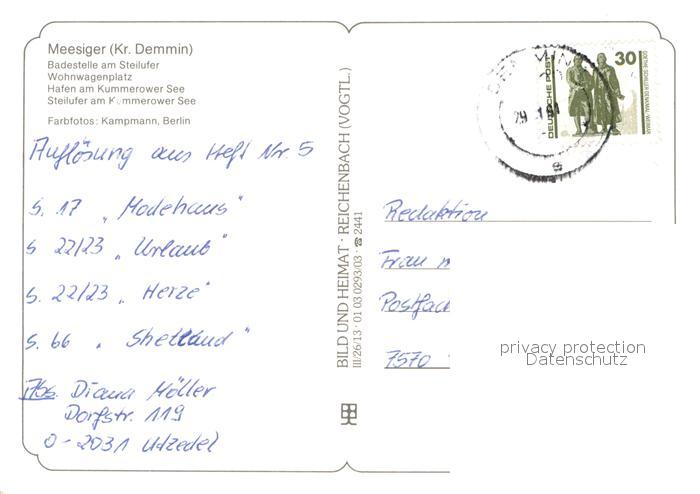 Meesiger (Kr. Demmin)
Badestelle am Steilufer
Wohnwagenplatz
Hafen am Kummerower See
Steilufer am Kummerower See
Farbfotos: Kampmann, Berlin
Auflösung aus Heft Nr. 5
S. 17 „Modehaus"
S 22/23 „Urlaub"
S. 22/23 „Herze"
S. 66 „Shetland"
Abs. Diana Möller
Dorfstr. 119
O-2031 Utzedel
BILD UND HEIMAT · REICHENBACH (VOGTL.)
III/26/13 · 01 03 0293/03 · ☎ 2441
DEUTSCHE POST
30
GOETHE-SCHILLER-DENKMAL · WEIMAR
Redaktion
Frau
Postfac
7570
privacy protection
Datenschutz